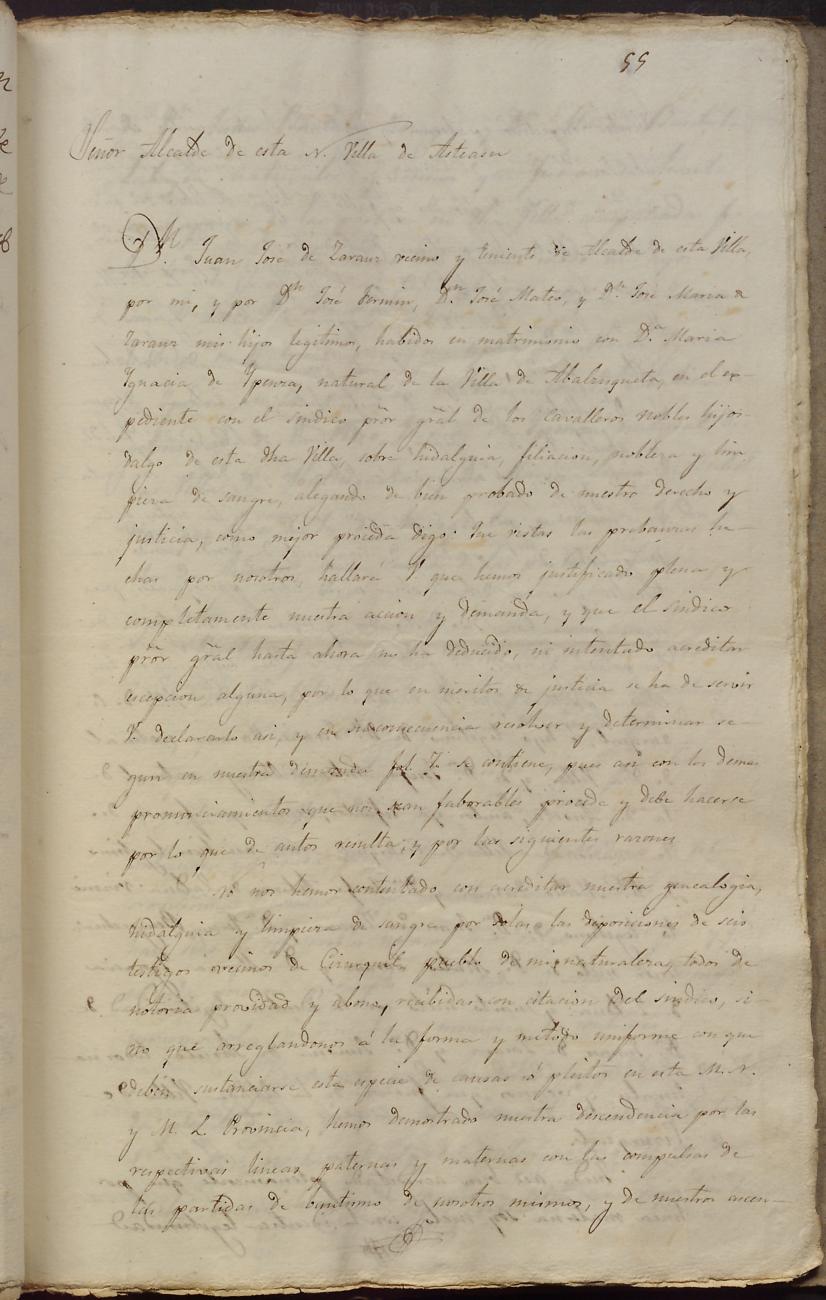 55
Señor Alcalde de esta N. Villa de Asteasu
Dn. Juan José de Zarauz vecino y teniente de Alcalde de esta Villa,
por mi, y por Dn. José Fermin, Dn. José Mateo, y Dn. José Maria de
Zarauz mis hijos legitimos, habidos en matrimonio con Da. Maria
Ignacia de Ypenza, natural de la Villa de Abalzisqueta, en el ex-
pediente con el sindico prõr grãl de los cavalleros nobles hijos-
dalgo de esta dha Villa, sobre hidalguia, filiacion, nobleza y lim
pieza de sangre, alegando de bien probado de nuestro derecho y
justicia, como mejor proceda digo: Que vistas las probanzas he-
chas por nosotros, hallará V. que hemos justificado plena y
completamente nuestra accion y demanda, y que el sindico
prõr grãl hasta ahora no ha deducido, ni intentado acreditar
escepcion alguna, por lo que en meritos de justicia se ha de servir
V. declararlo asi, y en su consecuencia resolver y determinar se-
gun en nuestra demanda fol. 7. se contiene, pues asi con los demas
pronunciamientos que nos sean faborables procede y debe hacerse
por lo que de autos resulta, y por las siguientes razones
No nos hemos contentado con acreditar nuestra genealogia,
hidalguia y limpieza de sangre por solas las deposiciones de seis
testigos vecinos de Cizurquil, pueblo de mi naturaleza, todos de
notoria providad y abono, recibidas con citacion del sindico, si-
no que arreglandonos á la forma y método uniforme con que
deben sustanciarse esta especie de causas ó pleitos en esta M. N.
y M. L. Provincia, hemos demostrado nuestra descendencia por las
respectivas lineas paternas y maternas con las compulsas de
las partidas de bautismo de nosotros mismos, y de nuestros ascen-